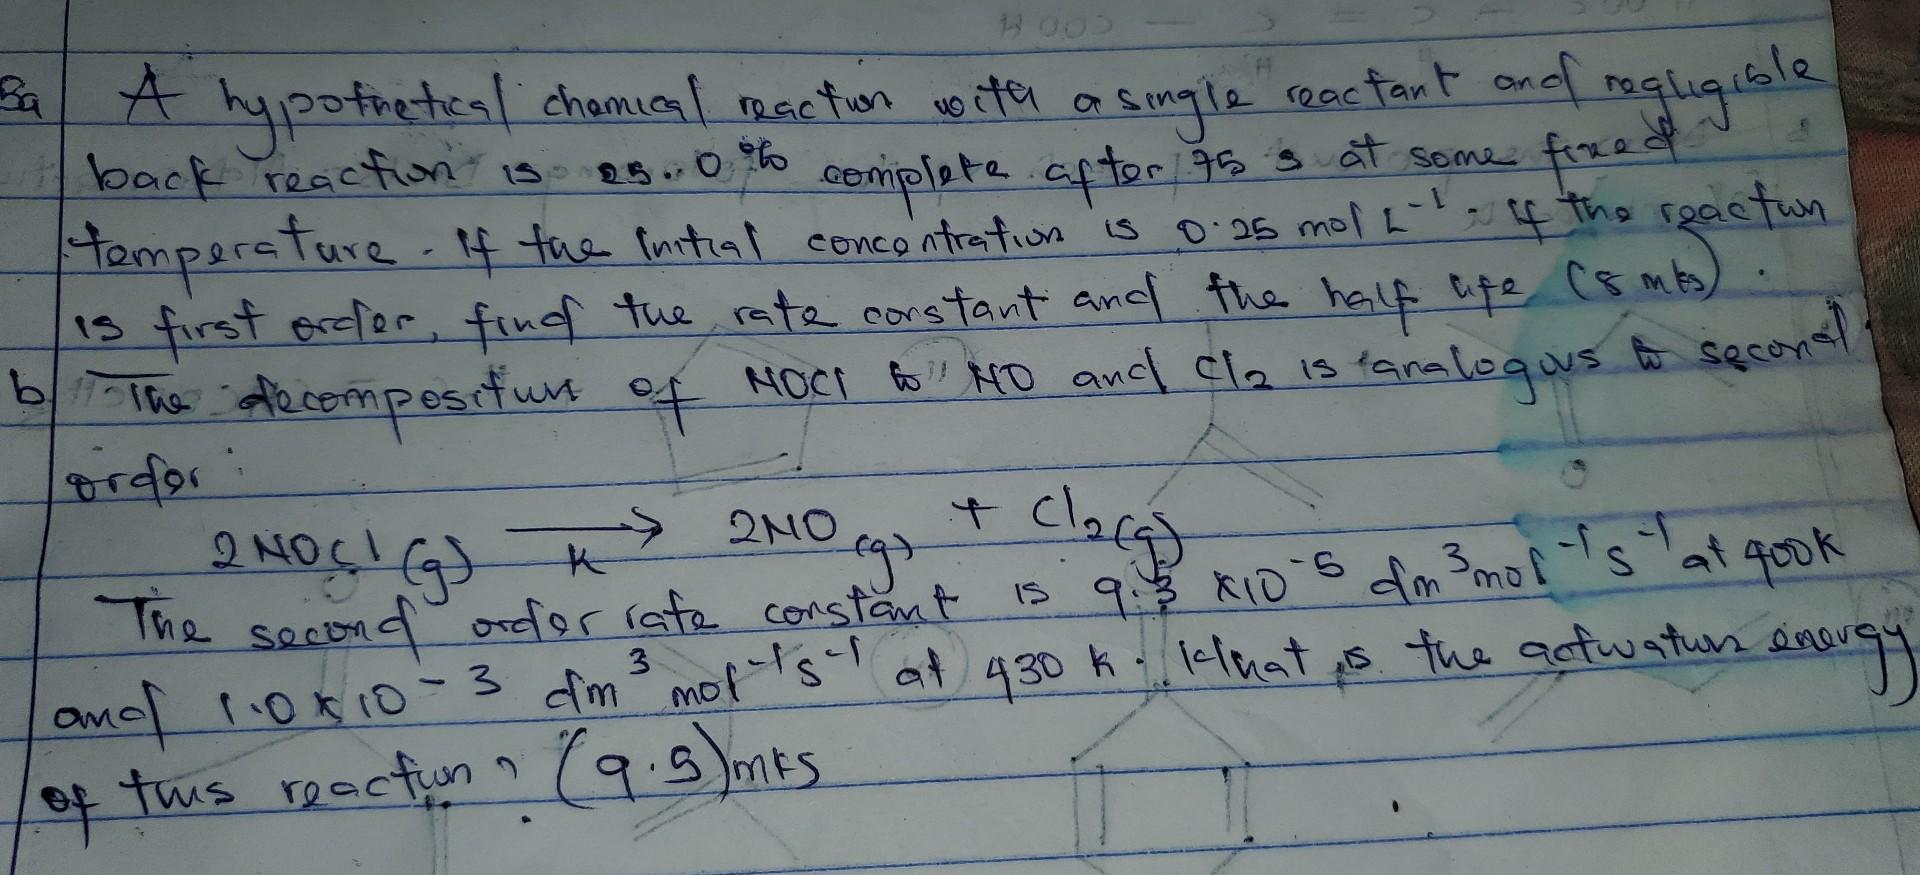 3a A hypothetical chemical reaction with a single reactant and negligible
back reaction is 25.0% complete after 75 s at some fixed
temperature. If the initial concentration is 0.25 mol L⁻¹. If the reaction
is first order, find the rate constant and the half life (8 mks).
b The decomposition of NOCl to NO and Cl₂ is analogous to second
order:
2NOCl (g) → k 2NO (g) + Cl₂ (g)
The second order rate constant is 9.3 x10⁻⁵ dm³ mol⁻¹ s⁻¹ at 400K
and 1.0 x 10⁻³ dm³ mol⁻¹ s⁻¹ at 430 K. What is the activation energy
of this reaction? (9.5) mks